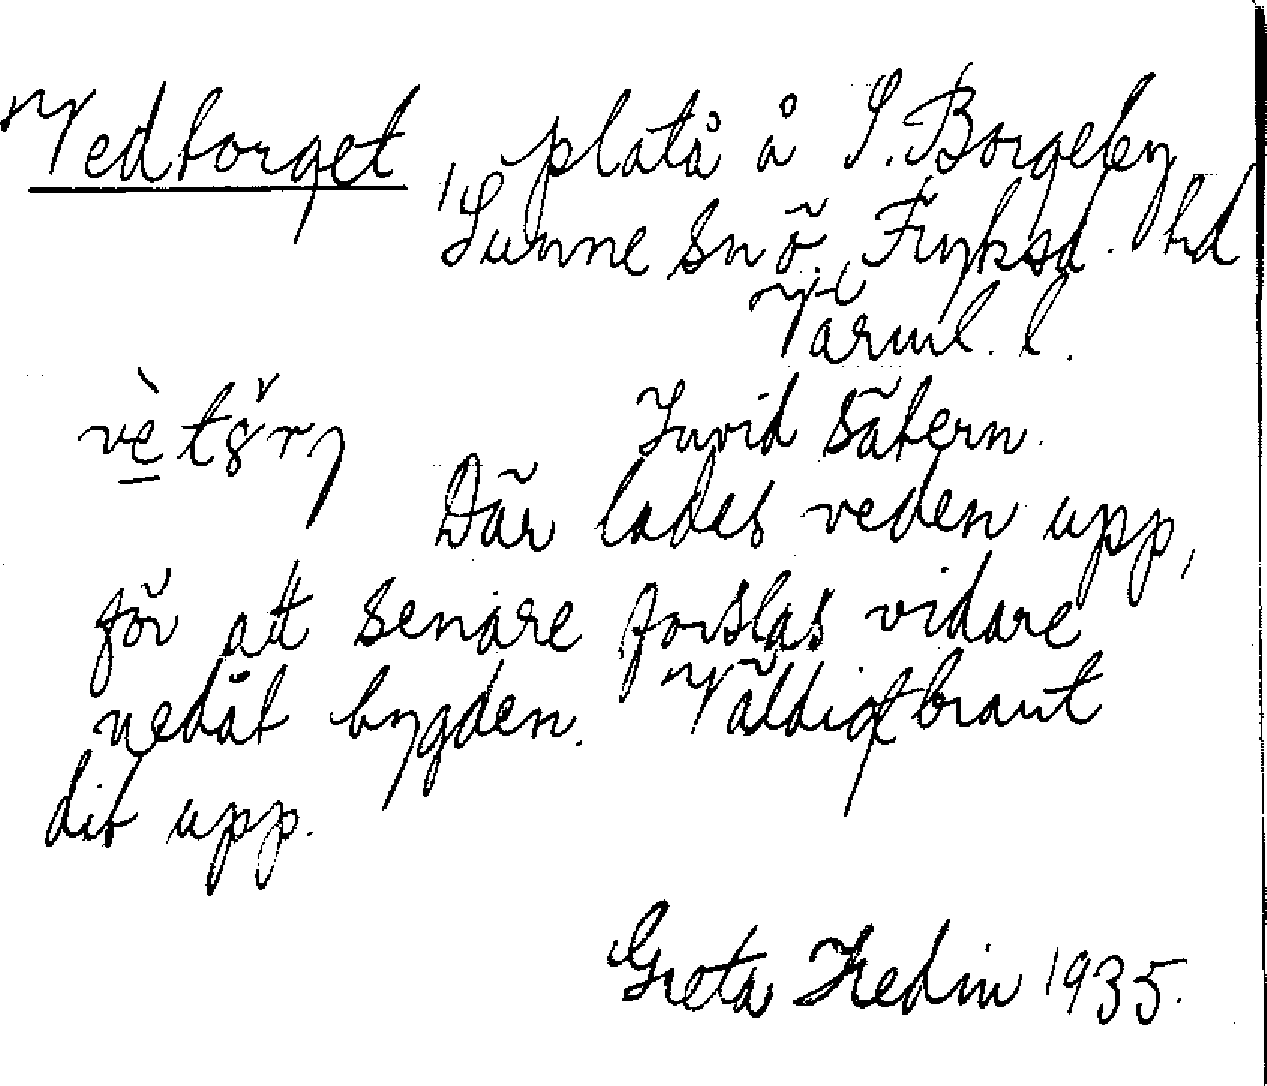 Vedtorget, platå å S. Borgeby
Sunne snö. Fryksd. hd
Värml. l.
Invid sätern.
Där lades veden upp,
för att senare forslas vidare
nedåt bygden. Väldigt brant
dit upp.
Greta Hedin 1935.